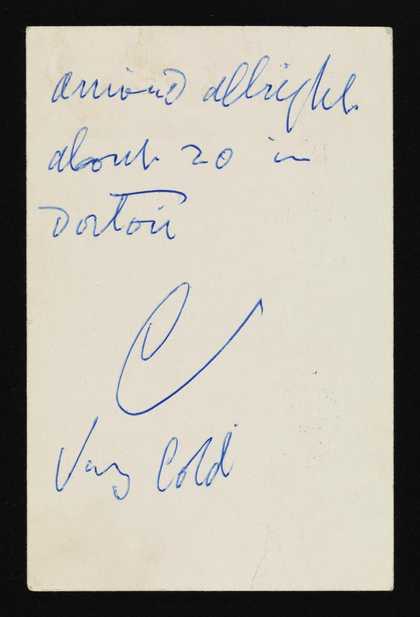 arrived allright
about 20 in
Dortoir
C
Very Cold